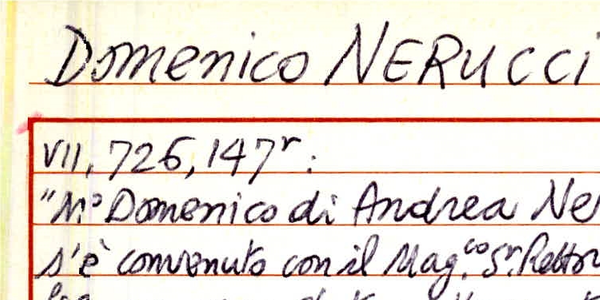 Domenico NERUCCI
VII, 726, 147r:
"Mo Domenico di Andrea Ne
s'è convenuto con il Mag.co Sr. Rettor